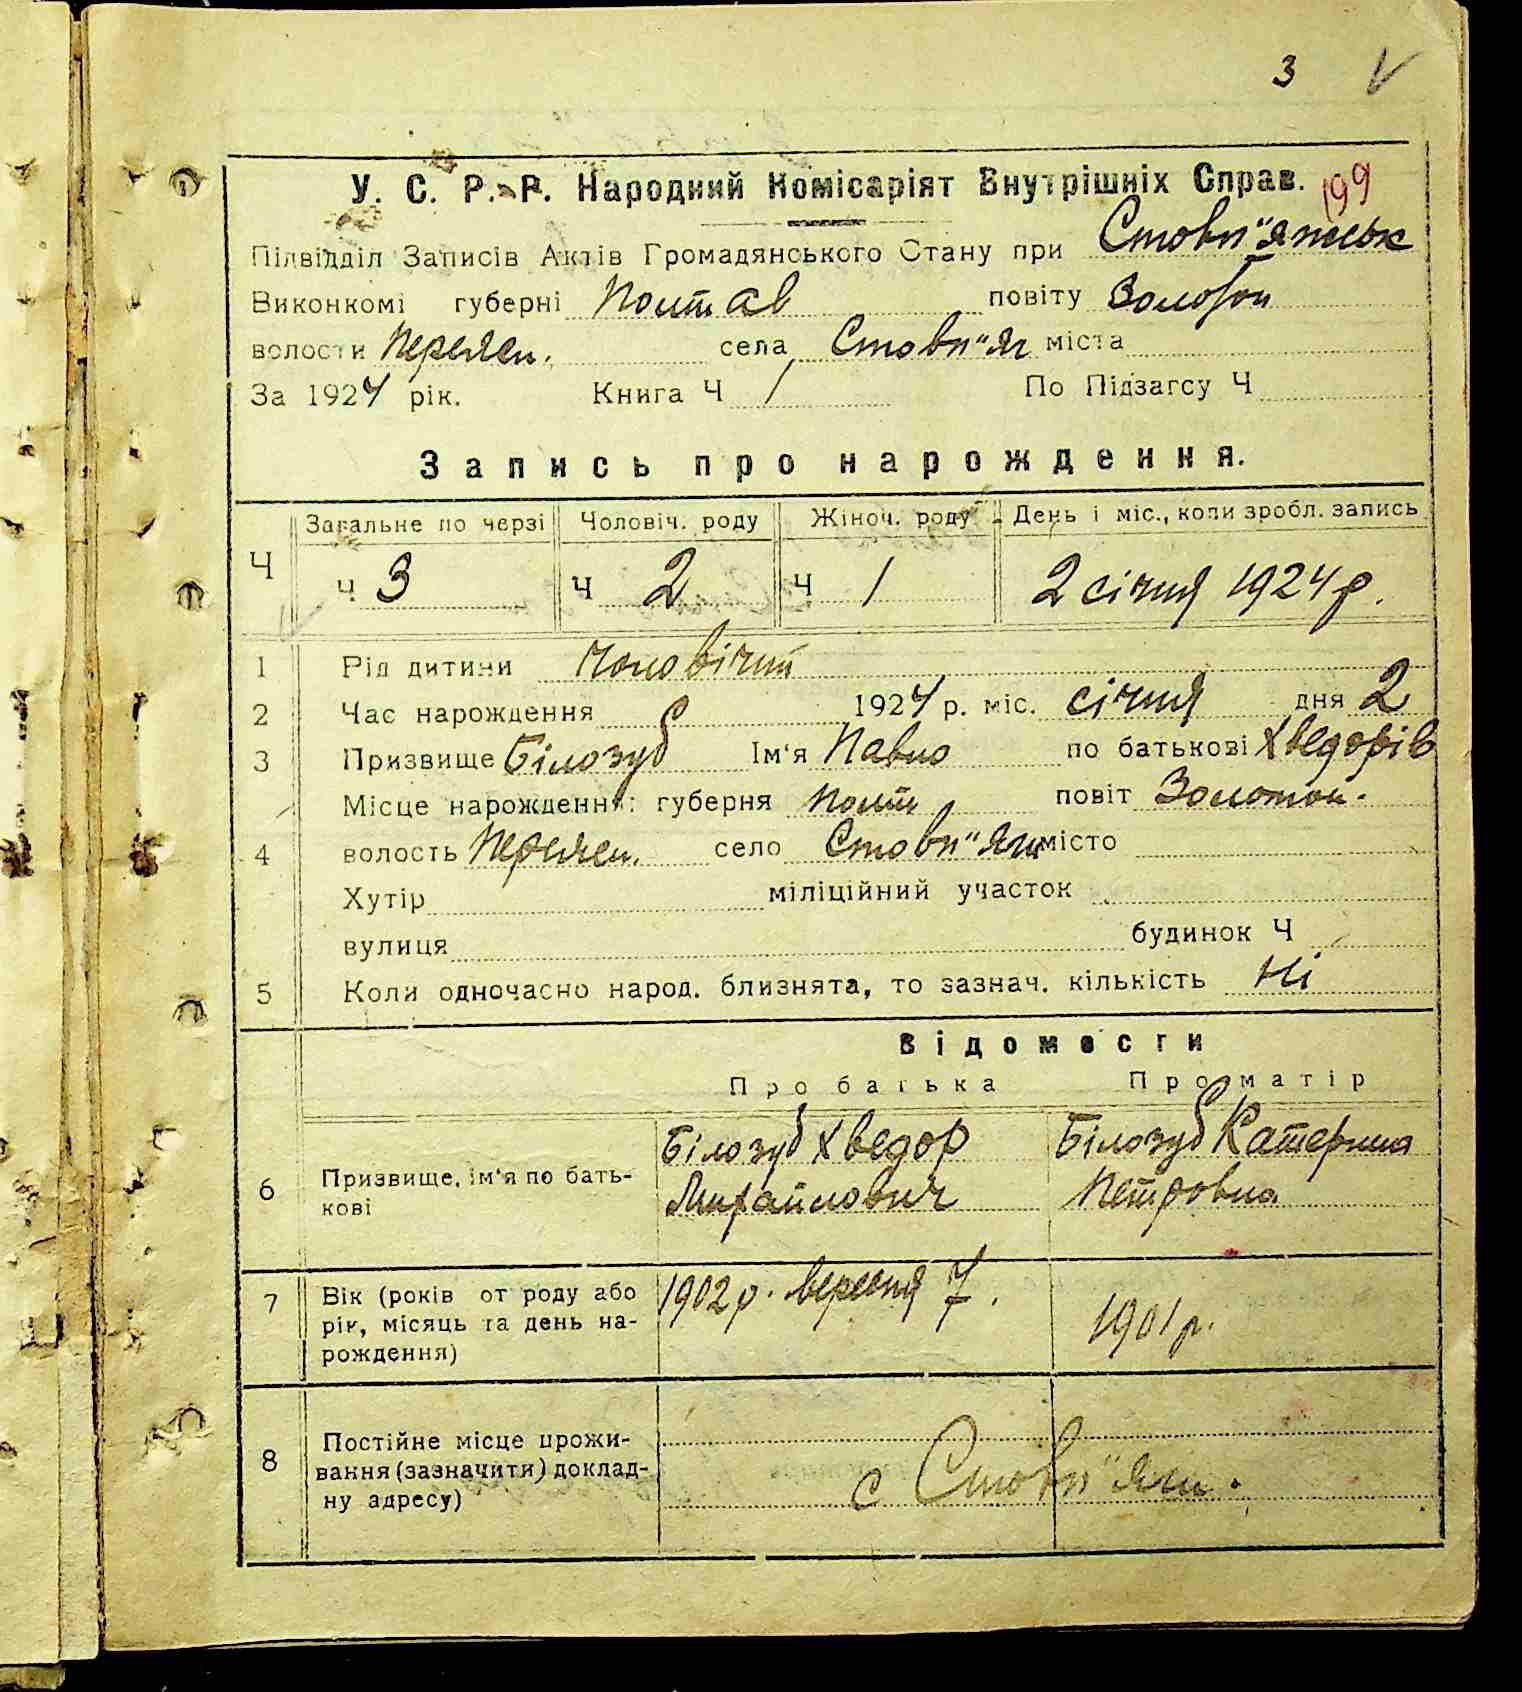 3
У. С. Р. Р. Народний Комісаріят Внутрішніх Справ. 199
Підвідділ Записів Актів Громадянського Стану при Стовп"яжськ
Виконкомі губерні Полтав повіту Золотон
волости Переясл. села Стовп"яги міста
За 1924 рік. Книга Ч 1 По Підзагсу Ч
Запись про нарождення.
Загальне по черзі Чоловіч. роду Жіноч. роду День і міс., коли зробл. запись
Ч Ч 3 Ч 2 Ч 1 2 січня 1924 р.
1 Рід дитини чоловічий
2 Час нарождення 1924 р. міс. січня дня 2
3 Призвище Білозуб Ім'я Павло по батькові Хведорів
Місце нарождення: губерня Полт повіт Золотон.
4 волость Переясл. село Стовп"яги місто
Хутір міліційний участок
вулиця будинок Ч
5 Коли одночасно народ. близнята, то зазнач. кількість Ні
Відомости
Про батька Про матір
6 Призвище, ім'я по батькові
Білозуб Хведор
Михайлович
Білозуб Катерина
Петровна
7 Вік (років от роду або
рік, місяць та день на-
рождення)
1902 р. вересня 7.
1901 р.
8 Постійне місце прожи-
вання (зазначити) доклад-
ну адресу)
с Стовп"яги.